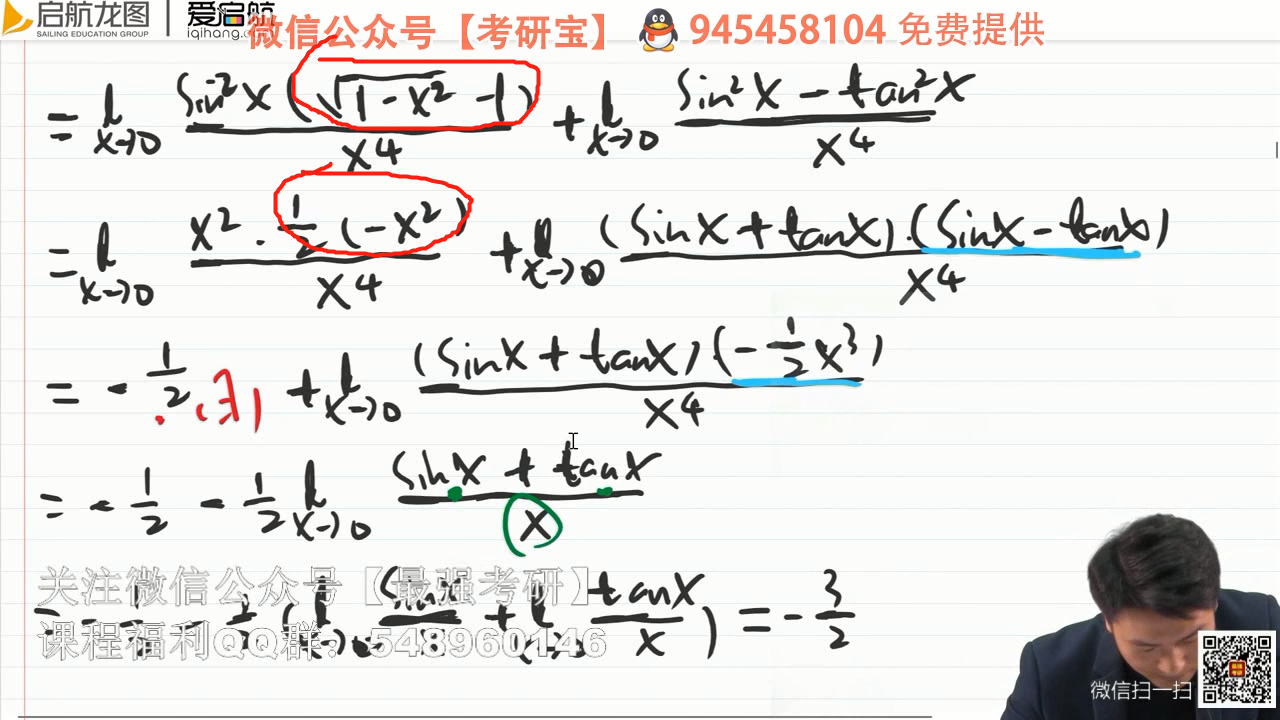 启航龙图 | 爱启航
SAILING EDUCATION GROUP iqihang.com
微信公众号【考研宝】 945458104 免费提供
= l x→0 sin²x (√1-x² -1) / x4 + l x→0 sin²x - tan²x / x4
= l x→0 x² · 1/2 (-x²) / x4 + l x→0 (sinx + tanx) · (sinx - tanx) / x4
= - 1/2 + l x→0 (sinx + tanx) (- 1/2 x³) / x4
= - 1/2 - 1/2 l x→0 sinx + tanx / x
关注微信公众号【最强考研】
( l sinx + l tanx / x ) = - 3/2
课程福利QQ群：548960146
微信扫一扫